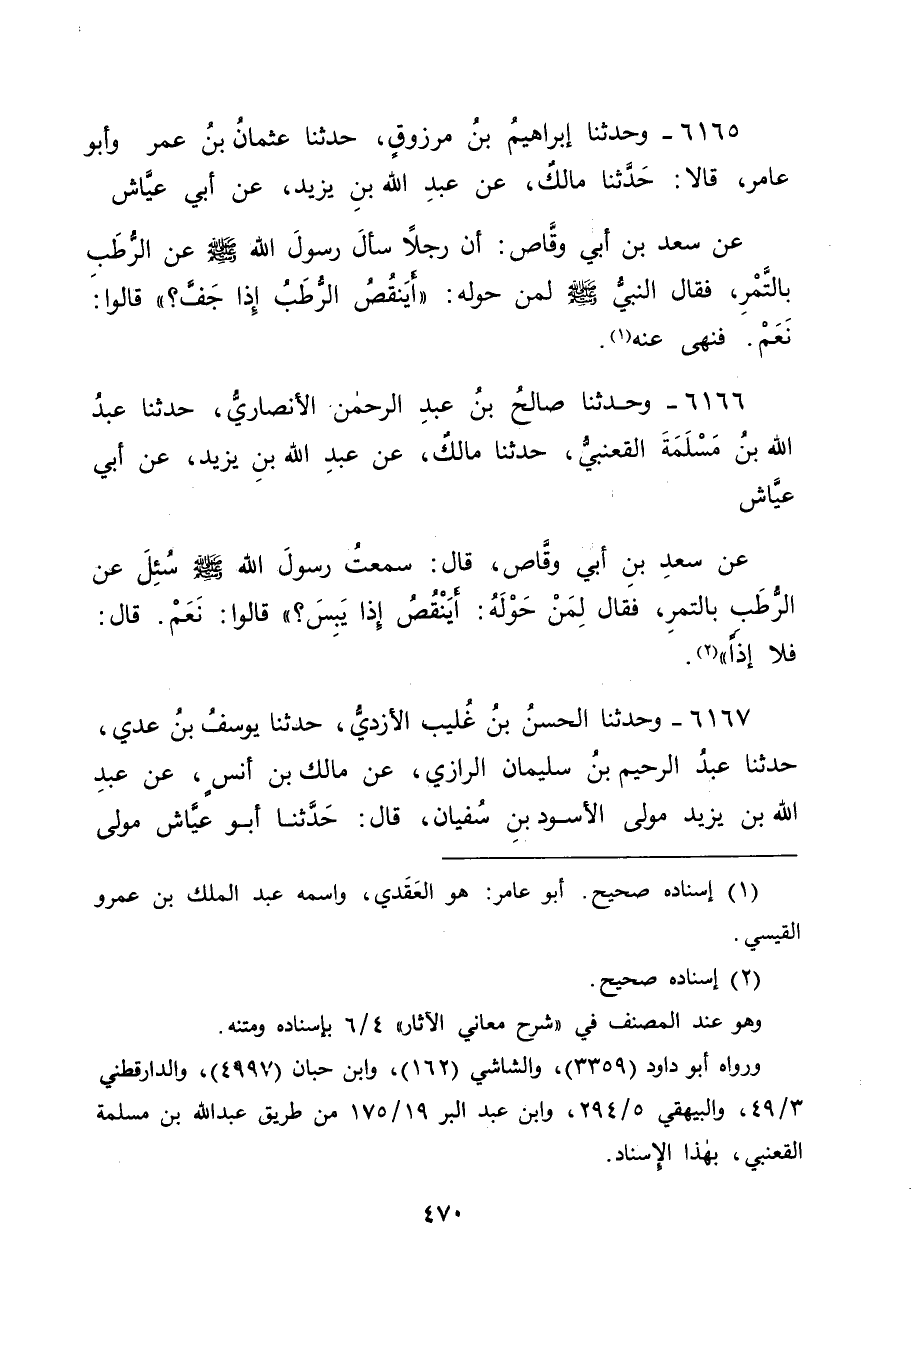 ٦١٦٥ - وحدثنا إبراهيمُ بنُ مرزوقٍ، حدثنا عثمانُ بنُ عمر وأبو
عامر، قالا: حَدَّثنا مالكٌ، عن عبدِ الله بنِ يزيد، عن أبي عيَّاش
عن سعد بن أبي وقَّاص: أن رجلاً سألَ رسولَ الله ﷺ عن الرُّطَبِ
بالتَّمْرِ، فقال النبيُّ ﷺ لمن حوله: «أَيَنقُصُ الرُّطَبُ إِذا جَفَّ؟» قالوا:
نَعَمْ. فنهى عنه(١).
٦١٦٦ - وحدثنا صالحُ بنُ عبدِ الرحمٰن الأنصاريُّ، حدثنا عبدُ
الله بنُ مَسْلَمَةَ القعنبيُّ، حدثنا مالكٌ، عن عبدِ الله بنِ يزيد، عن أبي
عيَّاش
عن سعدِ بنِ أبي وقَّاص، قال: سمعتُ رسولَ الله ﷺ سُئِلَ عن
الرُّطَبِ بالتمرِ، فقال لِمَنْ حَوْلَهُ: أَيَنْقُصُ إِذا يَبِسَ؟» قالوا: نَعَمْ. قال:
فلا إذاً»(٢).
٦١٦٧ - وحدثنا الحسنُ بنُ غُليب الأزديُّ، حدثنا يوسفُ بنُ عدي،
حدثنا عبدُ الرحيم بنُ سليمان الرازي، عن مالك بن أنسٍ، عن عبدِ
الله بن يزيد مولى الأسود بنِ سُفيان، قال: حَدَّثنا أبو عيَّاش مولى
(١) إسناده صحيح. أبو عامر: هو العَقَدي، واسمه عبد الملك بن عمرو
القيسي.
(٢) إسناده صحيح.
وهو عند المصنف في «شرح معاني الآثار» ٦/٤ بإسناده ومتنه.
ورواه أبو داود (٣٣٥٩)، والشاشي (١٦٢)، وابن حبان (٤٩٩٧)، والدارقطني
٤٩/٣، والبيهقي ٢٩٤/٥، وابن عبد البر ١٧٥/١٩ من طريق عبدالله بن مسلمة
القعنبي، بهٰذا الإسناد.
٤٧٠